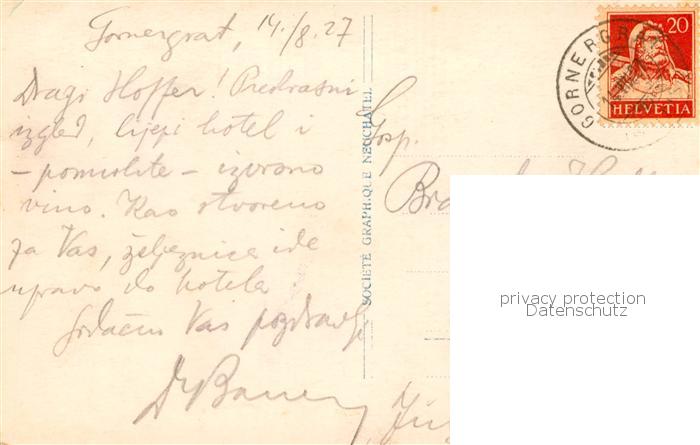 Gornergrat, 14./8.27
Dragi Hoffer! Prekrasni
izgled, lijepi hotel i
- pomislite - izvrsno
vino. Kao stvoreno
za Vas, željeznica ide
upravo do hotela.
Srdačno Vas pozdravlja
Dr Bauer
SOCIÉTÉ GRAPHIQUE NEUCHATEL
20
HELVETIA
GORNERGRAT
Gosp.
privacy protection
Datenschutz